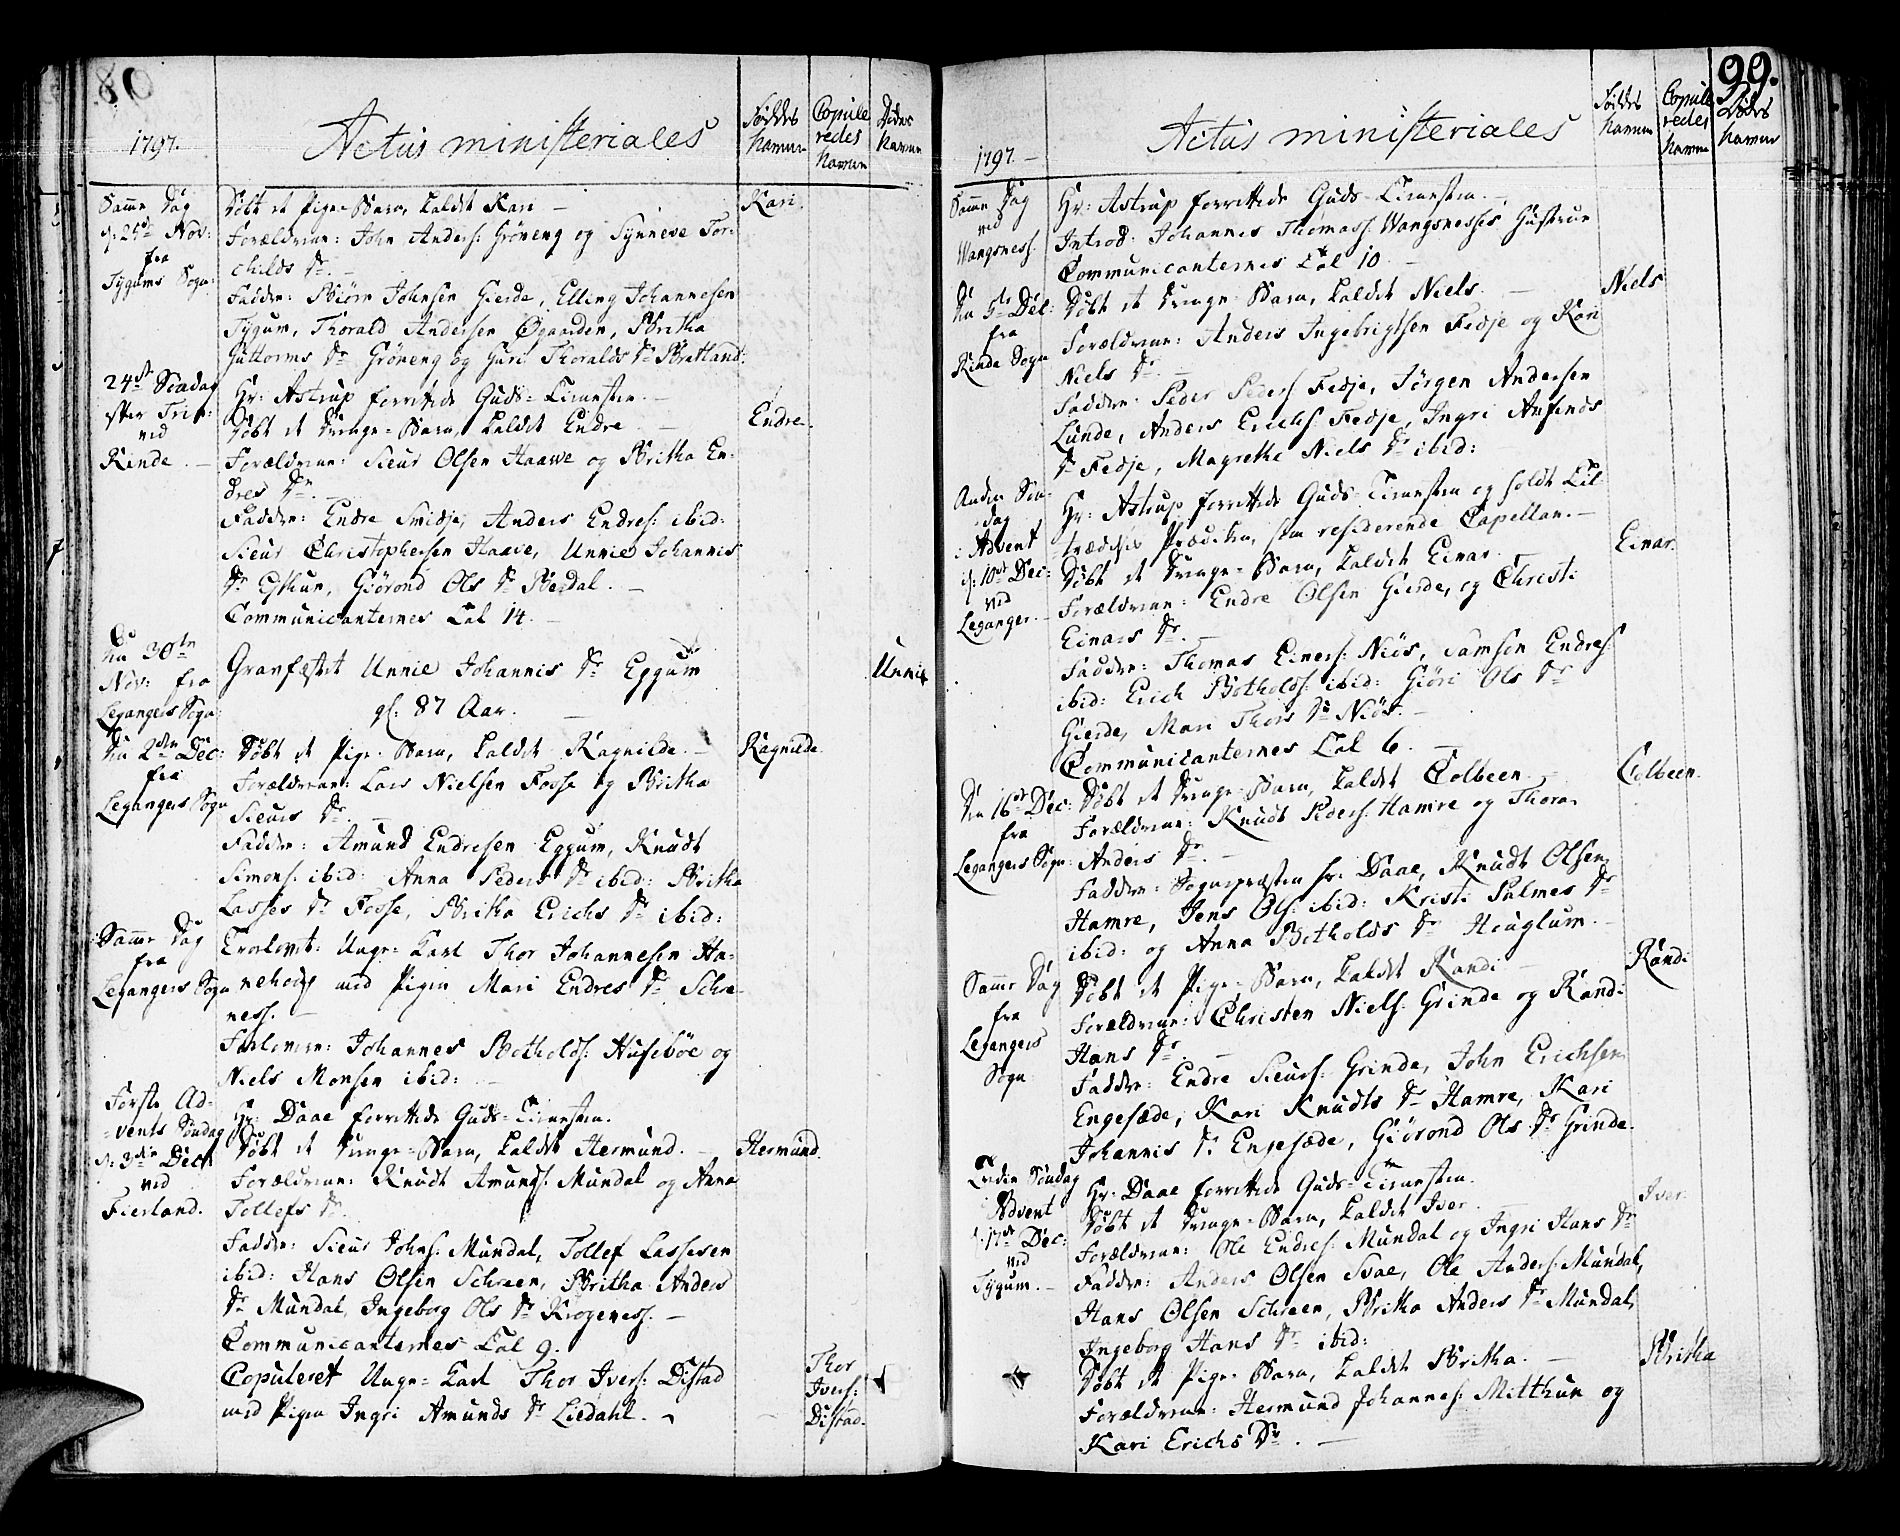 1797.
Actus ministeriales
Føddes Navne
Copule redes Navne
Dødes Navne
Samme Dag
d: 25de Nov:
fra
Tygums Sogn:
Døbt et Pige-Barn, kaldet Kari —
Kari.
Forældrene: John Anders: Grøneng og Synneve Tor-
childs Dr. —
Faddere: Biørn Johnsen Gierde, Elling Johannesen
Tygum, Thorald Andersen Øgaarden, Britha
Guttorms Dr Grøneng og Guri Thoralds Dr Bratland.
24de Søndag
efter Trin:
ved
Rinde. —
Hr: Astrup forrettede Guds-Tienesten. —
Døbt et Drenge-Barn, kaldet Endre. —
Endre.
Forældrene: Sieur Olsen Haawe og Britha En-
dres Dr. —
Faddere: Endre Smidje, Anders Endres: ibid:
Sieur Christophersen Haave, Unnie Johannis
Dr Eshun, Giørond Ols Dr Bedal. —
Communicanternes Tal 14. —
Den 30te
Nov: fra
Legangers Sogn:
Gravfæstet Unnie Johannis Dr Eggum
Unnie
gl: 87 Aar. —
Den 2den Dec:
fra
Legangers Sogn
Døbt et Pige-Barn, kaldet Ragnilde. —
Ragnilde.
Forældrene: Lars Nielsen Fosse og Britha
Sieurs Dr. —
Faddere: Amund Endresen Eggum, Knudt
Simons: ibid: Anna Peders Dr ibid: Britha
Lasses Dr Fosse, Britha Erichs Dr ibid:
Samme Dag
fra
Legangers Sogn
Trolovet: Unge-Karl Thor Johannesen Ha-
nehoug med Pigen Mari Endres Dr Schra-
ness. —
Forlovere: Johannes Botholds: Husebøe og
Niels Monsen ibid: —
Første Ad-
vents Søndag
d: 3die Dec:
ved
Fierland.
Hr: Daae forrettede Guds-Tienesten.
Døbt et Drenge-Barn, kaldet Hermund. —
Hermund.
Forældrene: Knudt Amunds: Mundal og Anna
Tollefs Dr.
Faddere: Sieur Johns: Mundal, Tollef Lassesen
ibid: Hans Olsen Schreen, Britha Anders
Dr Mundal, Ingeborg Ols Dr Krogeness. —
Communicanternes Tal 9.
Copuleret Unge-Karl Thor Ivers: Distad
med Pigen Ingri Amunds Dr Liedahl. —
Thor
Ivers:
Distad.
99.
1797 —
Actus ministeriales
Føddes Navne
Copule redes Navne
Dødes Navne
Samme Dag
ved
Wangsness.
Hr: Astrup forrettede Guds-Tienesten. —
Introd: Johannes Thomass: Wangsnesses Hustrue
Communicanternes Tal 10. —
Den 5te Dec:
fra
Rinde Sogn
Døbt et Drenge-Barn, kaldet Niels. —
Niels
Forældrene: Anders Ingebrigtsen Fedje og Kari
Niels Dr. —
Faddere: Peder Peders: Fedje, Jørgen Andersen
Lunde, Anders Erichs: Fedje, Ingri Anfinds
Dr Fedje, Magrethe Niels Dr ibid:
Anden Søn-
dag
i Advent
d: 10de Dec:
ved
Leganger. —
Hr: Astrup forrettede Guds-Tienesten og holdt Til-
trædelses Prædiken, som residerende Capellan. —
Døbt et Drenge-Barn, kaldet Einar.
Einar.
Forældrene: Endre Olsen Gierde, og Christi
Einars Dr. —
Faddere: Thomas Einers: Niøs, Samson Endres:
ibid: Erich Botholds: ibid: Giøri Ols Dr
Gierde, Mari Thors Dr Niøs. —
Communicanternes Tal 6. —
Den 16de Dec:
fra
Legangers Sogn:
Døbt et Drenge-Barn, kaldet Colbeen. —
Colbeen.
Forældrene: Knudt Peders: Hamre og Thora
Anders Dr. —
Faddere: Sognepræsten Hr: Daae, Knudt Olsen
Hamre, Jens Ols: ibid: Kristi Palmes Dr
ibid: og Anna Botholds Dr Henglum. —
Samme Dag
fra
Legangers
Sogn
Døbt et Pige-Barn, kaldet Randi —
Randi
Forældrene: Christen Niels: Grinde og Randi
Hans Dr. —
Faddere: Endre Sieurs: Grinde, John Erichsen
Engesæde, Kari Knudts Dr Hamre, Kari
Johannis Dr. Engesæde, Giørond Ols Dr Grinde.
Tredie Søndag
i Advent
d. 17de Dec:
ved
Tygum. —
Hr: Daae forrettede Guds-Tienesten.
Døbt et Drenge-Barn, kaldet Iver. —
Iver.
Forældrene: Ole Endres: Mundal og Ingri Hans Dr
Faddere: Anders Olsen Svae, Ole Anders: Mundal,
Hans Olsen Schreen, Britha Anders Dr Mundal,
Ingeborg Hans Dr ibid:
Døbt et Pige-Barn, kaldet Britha. —
Britha
Forældrene: Hermund Johannes: Mitthun og
Kari Erichs Dr. —